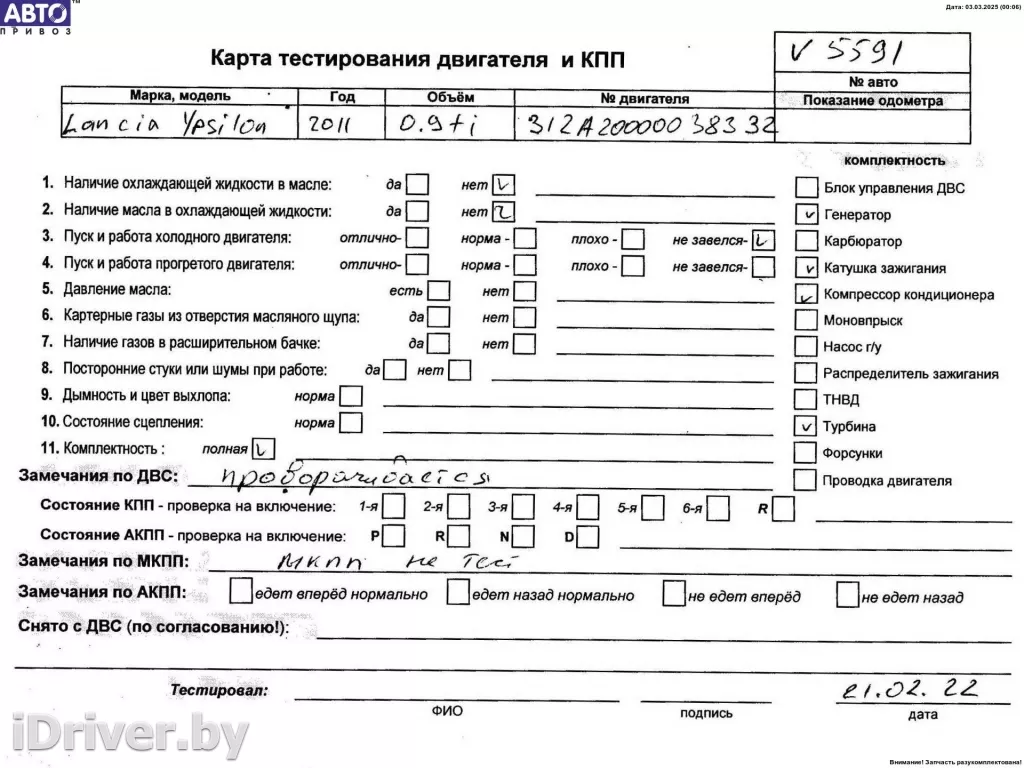 АВТО™
ПРИВОЗ
Дата: 03.03.2025 (00:06)
Карта тестирования двигателя и КПП
V 5591
№ авто
Марка, модель Год Объём № двигателя Показание одометра
Lancia Ypsilon 2011 0.9ti 312A2000003833​2
комплектность
1. Наличие охлаждающей жидкости в масле: да нет V
Блок управления ДВС
2. Наличие масла в охлаждающей жидкости: да нет V
V Генератор
3. Пуск и работа холодного двигателя: отлично- норма - плохо - не завелся- V
Карбюратор
4. Пуск и работа прогретого двигателя: отлично- норма - плохо - не завелся-
V Катушка зажигания
5. Давление масла: есть нет
V Компрессор кондиционера
6. Картерные газы из отверстия масляного щупа: да нет
Моновпрыск
7. Наличие газов в расширительном бачке: да нет
Насос г/у
8. Посторонние стуки или шумы при работе: да нет
Распределитель зажигания
9. Дымность и цвет выхлопа: норма
ТНВД
10. Состояние сцепления: норма
V Турбина
11. Комплектность : полная V
Форсунки
Замечания по ДВС: проворачивается
Проводка двигателя
Состояние КПП - проверка на включение: 1-я 2-я 3-я 4-я 5-я 6-я R
Состояние АКПП - проверка на включение: P R N D
Замечания по МКПП: МКПП не тест
Замечания по АКПП: едет вперёд нормально едет назад нормально не едет вперёд не едет назад
Снято с ДВС (по согласованию!):
Тестировал:
21.02.22
ФИО подпись дата
iDriver.by
Внимание! Запчасть разукомплектована!